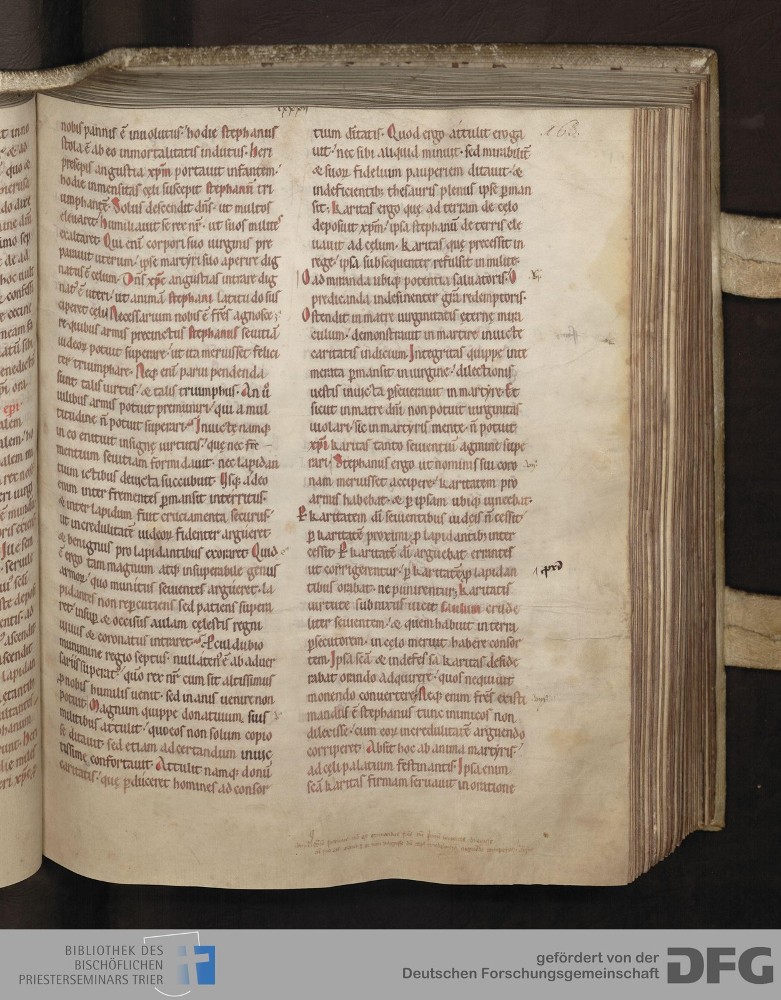 lxxxii
163.
nobis pannis ē inuolutus· hodie stephanus
stola ē ab eo inmortalitatis indutus· heri
presepis angustia xpm̄ portauit infantem·
hodie inmensitas cęli suscepit stephanū tri
umphantē· Solus descendit dn̄s· ut multos
eleuaret· humiliauit se rex nr̄· ut suos milites
exaltaret· Qui enī corporis suo uirginis pre
parauit uterum· ipse martyri suo aperire dig
natus ē celum· Dn̄s xpc̄ angustias intrare dig
nat᷒ ē uteri· ut animā stephani latitudo sus
ciperet cęli· Necessarium nobis ē fr̄s agnosce
re quibus armis precinctus stephanus seuitiā
iudeoꝝ potuit superare· ut ita meruisset felici
ter triumphare· Neqꝫ enī parui pendenda
sunt talis uirtus· & talis triumphus· An ū
uilibus armis potuit premuniri· qui a mul
titudine n̄ potuit superari· Inuicte namqꝫ
in eo enituit insigne uirtutis· que nec fre
mentium seuitiam formidauit· nec lapidan
tium ictibus deuicta succubuit· Usqꝫ adeo
enim inter frementes ꝑmansit interritus·
& inter lapidum fuit cruciamenta securus·
ut incredulitatē iudeoꝝ fidenter argueret·
& benignus pro lapidantibus exoraret· Quid
ē ergo tam magnum atqꝫ insuperabile genus
armoꝝ· quo munitus seuientes argueret· la
pidantes non repercutiens sed patiens supera
ret· insuꝑ & occisus aulam cęlestis regni
uiuus & coronatus intraret· Procul dubio
munimine regio septus· nullaten᷒ ē ab aduer
sariis superat᷒· quo rex nr̄ cum sit altissimus
ꝓ nobis humilis uenit· sed inanis uenire non
potuit· Magnum quippe donatiuum suis
militibus attulit· quo eos non solum copio
se ditauit sed etiam ad certandum inuic
tissime confortauit· Attulit namqꝫ donū
caritatis· que ꝑduceret homines ad consor
tium diuitatis· Quod ergo attulit eroga
uit· nec sibi aliquid minuit· sed mirabilit̄
& suoꝝ fidelium pauperiem ditauit· &
indeficientibꝫ thesauris plenus ipse ꝑman
sit· Karitas ergo que ad terram de cęlo
deposuit xpm̄· ipsa stephanū de terris ele
uauit ad cęlum· Karitas que precessit in
rege· ipsa subsequenter refulsit in milite·
O admiranda ubiqꝫ potentia saluatoris· O
predicanda indesinenter grā redemptoris·
Ostendit in matre uirginitatis eterne mira
culum· demonstrauit in martire inuicte
caritatis indicium· Integritas quippe inte
merata ꝑmansit in uirgine· dilectionis
uestis inuicta ꝑseuerauit in martyre· Et
sicut in matre dn̄i non potuit uirginitas
uiolari· sic in martyris mente n̄ potuit
xpi karitas tanto seuientiū agmine supe
rari· Stephanus ergo ut nominis sui coro
nam meruisset accipere· karitatem pro
armis habebat· & ꝑ ipsam ubiqꝫ uincebat·
P karitatem dī seuientibus iudeis n̄ cessit·
ꝑ karitatē proximi ꝓ lapidantibꝫ inter
cessit· P karitatē dī arguebat errantes
ut corrigerentur· ꝑ karitatē ꝓ lapidan
tibus orabat· ne punirentur· Karitatis
uirtute subnixus uicit saulum crude
liter seuientem· & quem habuit in terra
ꝑsecutorem· in cęlo meruit habere consor
tem· Ipsa scā & indefessa karitas deside
rabat orando adquirere· quos nequiuit
monendo conuertere· Neqꝫ enim fr̄s existi
mandus ē stephanus tunc inimicos non
dilexisse· cum eoꝝ incredulitatē arguendo
corriperet· Absit hoc ab anima martyris·
ad cęli palatium festinantis· Ipsa enim
scā karitas firmam seruauit in oratione
BIBLIOTHEK DES
BISCHÖFLICHEN
PRIESTERSEMINARS TRIER
gefördert von der
Deutschen Forschungsgemeinschaft
DFG